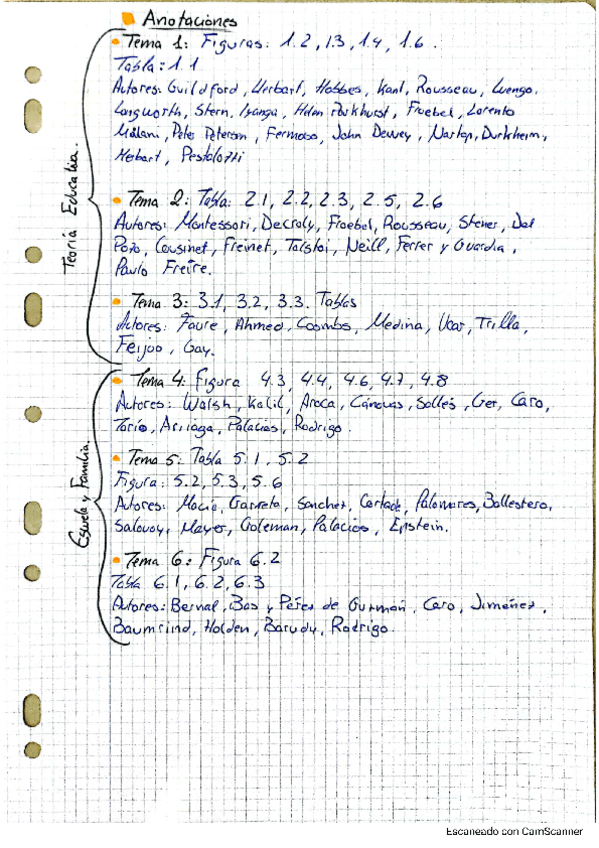 Anotaciones
Tema 1: Figuras: 1.2, 1.3, 1.4, 1.6.
Tabla: 1.1
Autores: Guildford, Herbart, Hobbes, Kant, Rousseau, Luengo,
Longworth, Stern, Helen Parkhurst, Froebel, Lorento
Milani, Peter Petersen, Fermoso, John Dewey, Natorp, Durkheim,
Herbart, Pestalozzi
Teoría Educativa.
Tema 2: Tabla: 2.1, 2.2, 2.3, 2.5, 2.6
Autores: Montessori, Decroly, Froebel, Rousseau, Steiner, Del
Pozo, Cousinet, Freinet, Tolstoi, Neill, Ferrer y Guardia,
Paulo Freire.
Tema 3: 3.1, 3.2, 3.3. Tablas
Autores: Faure, Ahmed, Coombs, Medina, Trilla,
Feijoo, Gay.
Tema 4: Figura 4.3, 4.4, 4.6, 4.7, 4.8
Autores: Walsh, Kalil, Aroca, Cánovas, Sallés, Ger, Caro,
Torío, Arriaga, Palacios, Rodrigo.
Escuela y Familia.
Tema 5: Tabla 5.1, 5.2
Figura: 5.2, 5.3, 5.6
Autores: Garreta, Sanchez, Palomares, Ballestero,
Salovoy, Mayer, Goleman, Palacios, Epstein.
Tema 6: Figura 6.2
Tabla 6.1, 6.2, 6.3
Autores: Bernal, Bas y Pérez de Guzmán, Caro, Jiménez,
Baumrind, Holden, Barudy, Rodrigo.
Escaneado con CamScanner